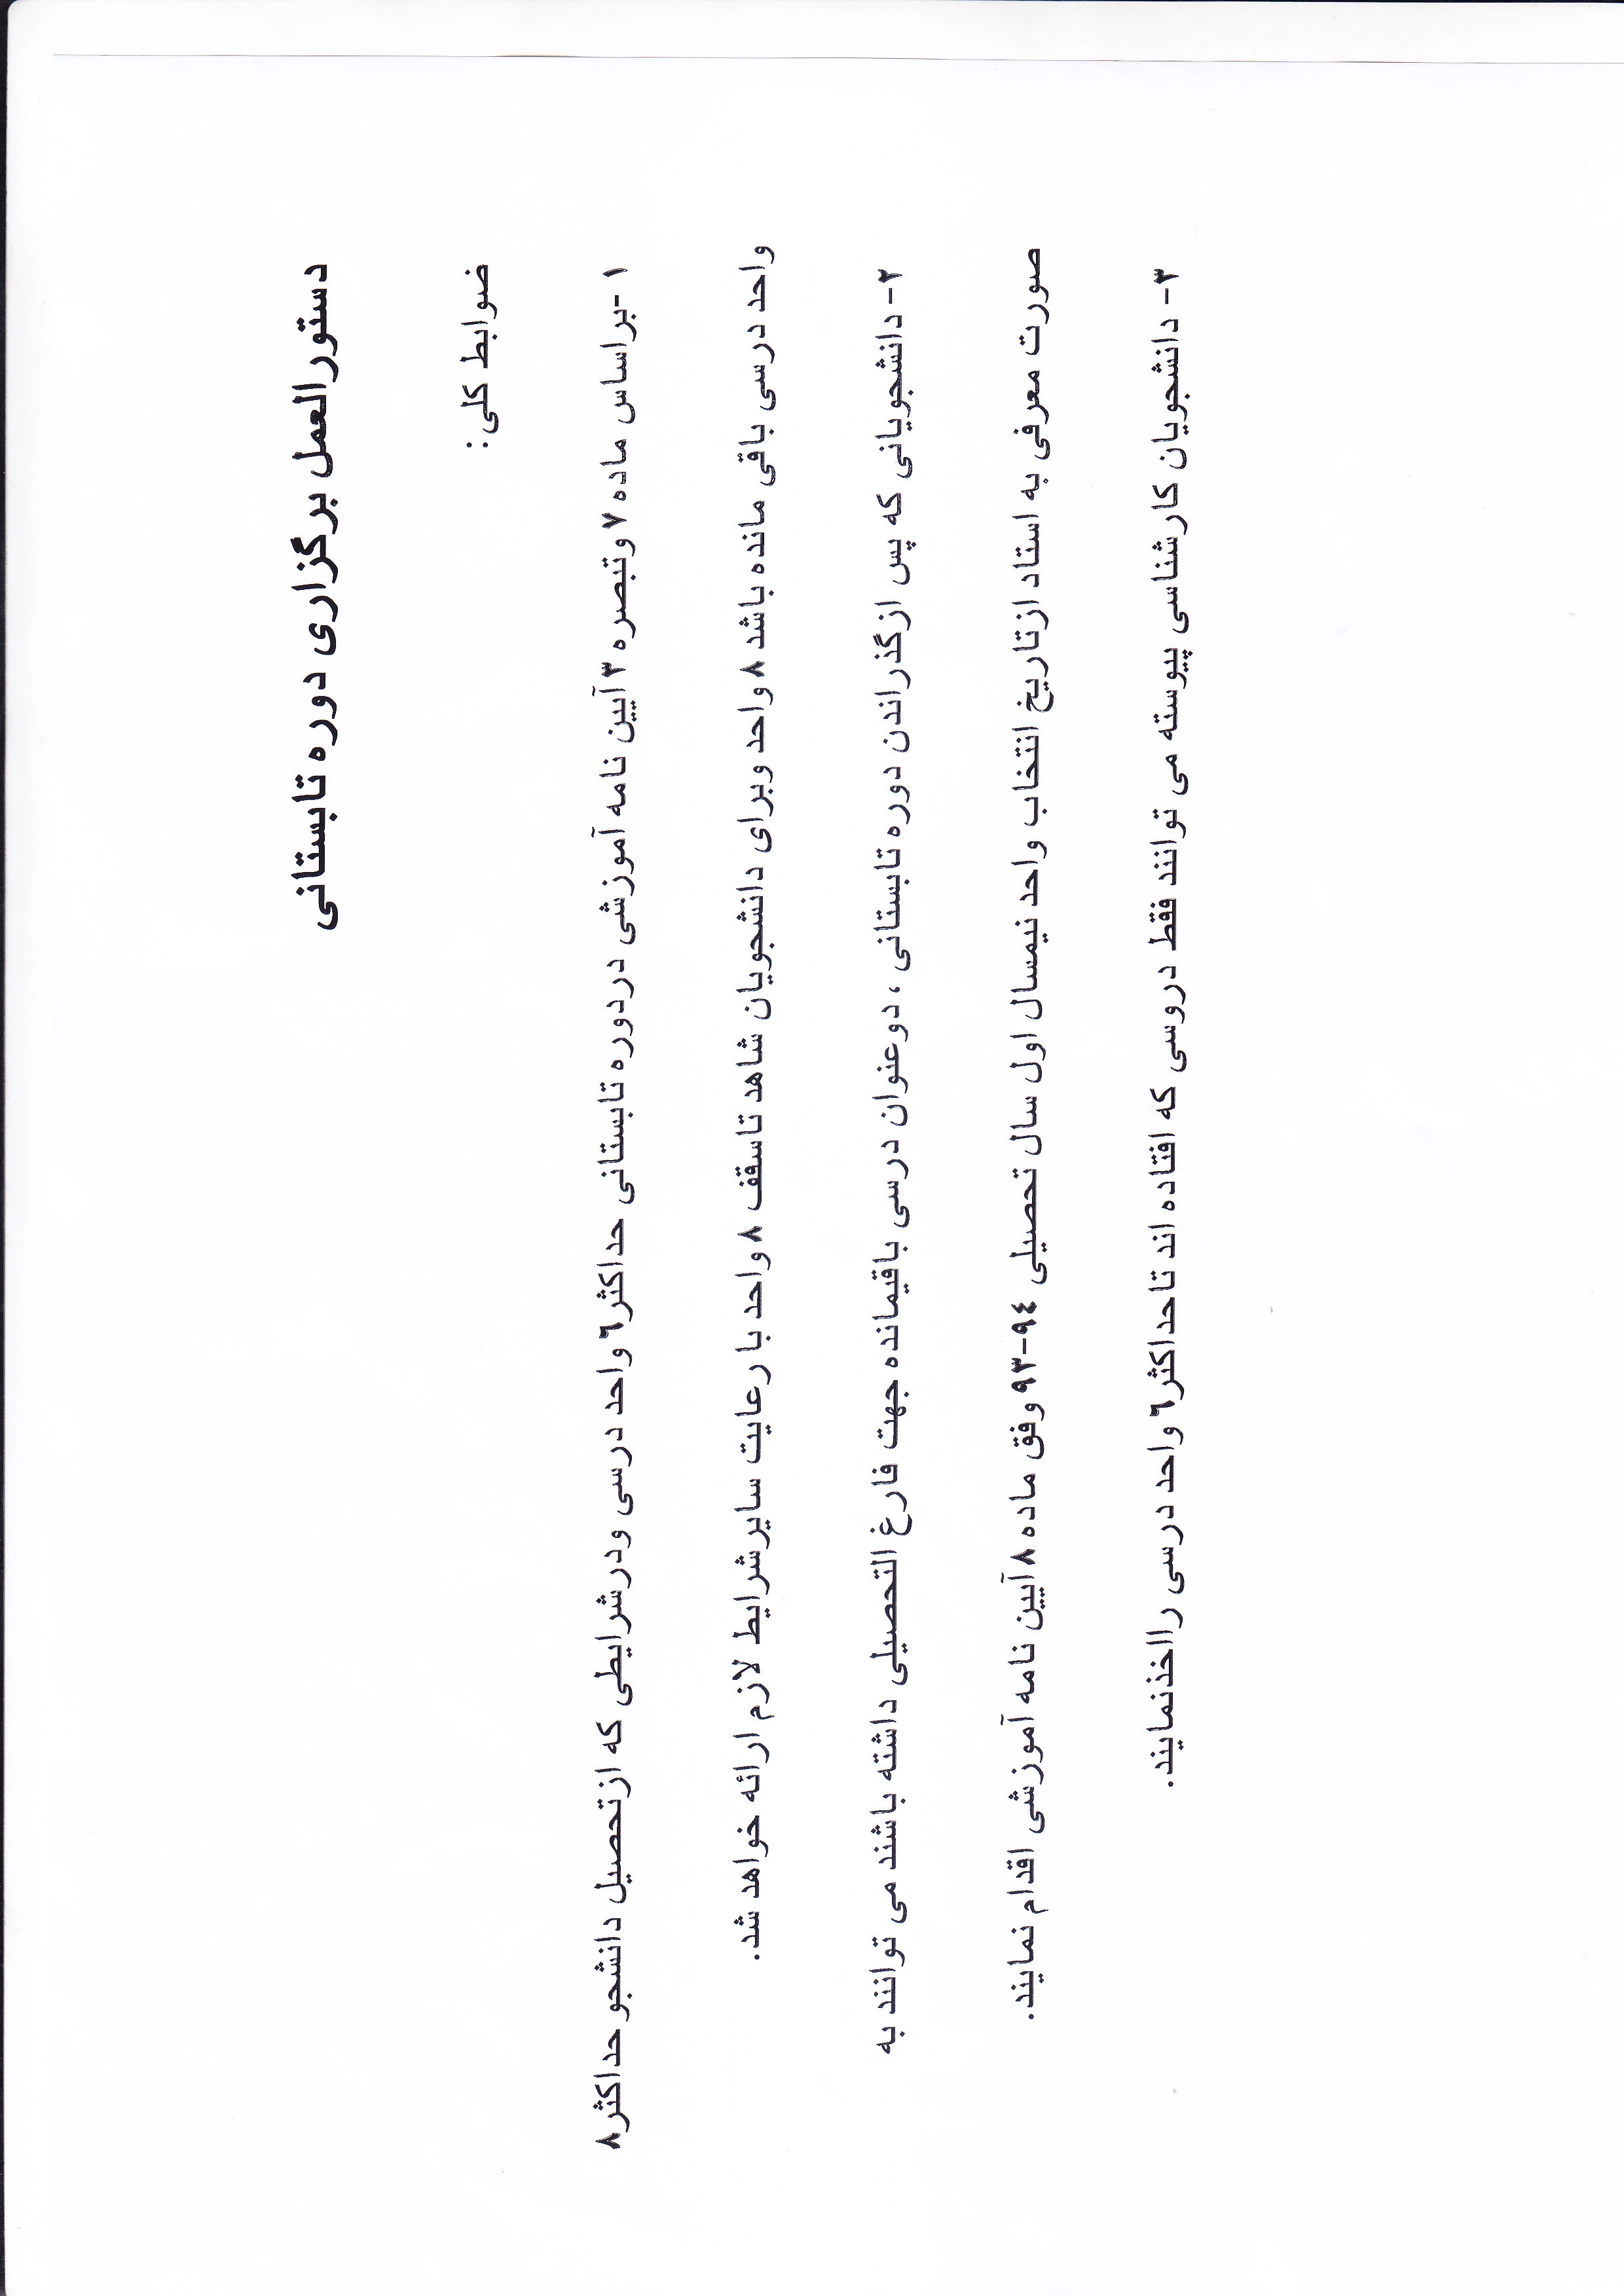 دستورالعمل برگزاری دوره تابستانی
ضوابط کلی:
۱ -براساس ماده ۷ وتبصره ۳ آیین نامه آموزشی دردوره تابستانی حداکثر٦ واحد درسی ودرشرایطی که ازتحصیل دانشجو حداکثر۸
واحد درسی باقی مانده باشد ۸ واحد وبرای دانشجویان شاهد تاسقف ۸ واحد با رعایت سایرشرایط لازم ارائه خواهد شد.
۲- دانشجویانی که پس ازگذراندن دوره تابستانی ، دوعنوان درسی باقیمانده جهت فارغ التحصیلی داشته باشند می توانند به
صورت معرفی به استاد ازتاریخ انتخاب واحد نیمسال اول سال تحصیلی ۹٤-۹۳ وفق ماده ۸ آیین نامه آموزشی اقدام نمایند.
۳- دانشجویان کارشناسی پیوسته می توانند فقط دروسی که افتاده اند تاحداکثر٦ واحد درسی رااخذنمایند.